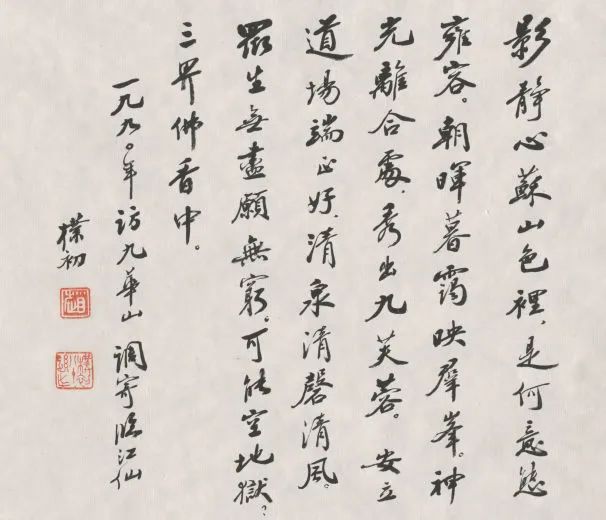 影靜心蘇山色裡，是何意態
雍容。朝暉暮靄映羣峯。神
光離合處，秀出九芙蓉。安立
道場端正好，清泉清磬清風。
眾生無盡願無窮。可能空地獄？
三界佛香中。
一九九〇年訪九華山 調寄臨江仙
樸初